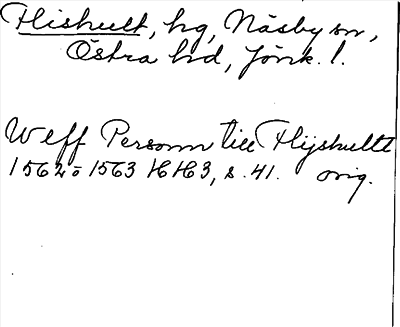 Flishult, hg, Näsby sn,
Östra hd, Jönk. l.
Weff Personn till Flijshulltt
1562 o 1563 HH3, s. 41. orig.